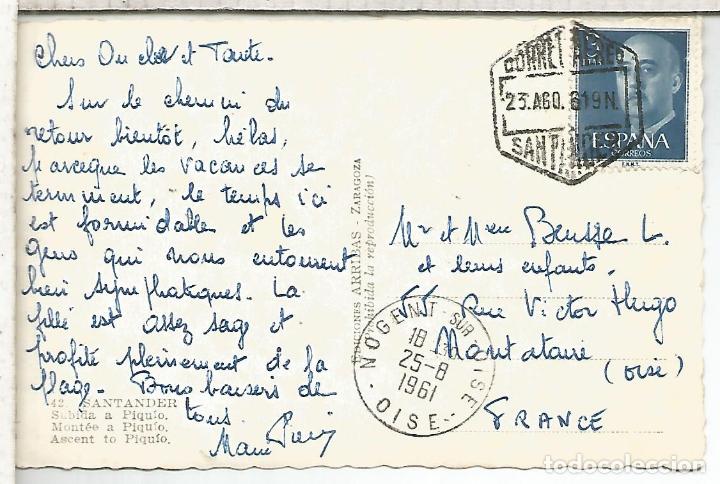 Chers Oncle et Tante.
Sur le chemin du
retour bientôt, hélas,
parceque les vacances se
terminent, le temps ici
est formidable et les
gens qui nous entourent
bien sympathiques. La
fille est assez sage et
profite pleinement de la
plage. Bons baisers de
tous.
42. SANTANDER
Subida a Piquío.
Montée a Piquío.
Ascent to Piquío.
EDICIONES ARRIBAS - ZARAGOZA
(Prohibida la reproducción)
CORREO AEREO
23.AGO.61 9N.
SANTANDER
ESPAÑA
CORREOS
Mr et Mme L.
et leurs enfants.
55 Rue Victor Hugo
Montataire
(Oise)
FRANCE
NOGENT-SUR-OISE
18
25-8
1961
OISE
todocoleccion.net